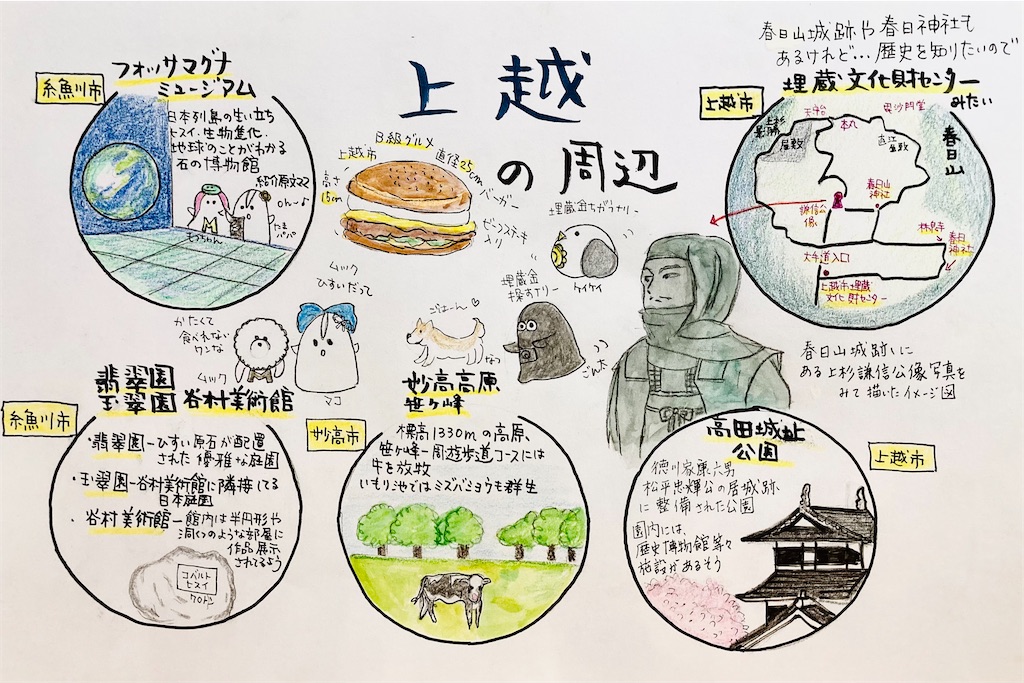 上越
の周辺
糸魚川市
フォッサマグナ
ミュージアム
日本列島の生い立ち
ヒスイ、生物進化、
地球のことがわかる
石の博物館
紹介原文ママ
たま
パパ
B級グルメ
上越市
直径25cm
バーガー
高さ
15cm
ビーフステーキ
入り
埋蔵金ちがうナリー
ケイケイ
埋蔵金
探すナリー
ごん太
ごはーん♡
なつ
ムック
ひすいだって
かたくて
食べれない
ワンな
ムック
マコ
春日山城跡や春日神社も
あるけれど…歴史を知りたいので
上越市
埋蔵文化財センター
みたい
春日山
毘沙門堂
天守台
本丸
上杉
景勝
屋敷
直江
屋敷
春日山
神社
謙信公
像
林泉寺
春日
神社
大手道入口
上越市埋蔵
文化財センター
春日山城跡に
ある上杉謙信公像写真を
みて描いたイメージ図
糸魚川市
翡翠園
玉翠園
谷村美術館
・翡翠園ーひすい原石が配置
された優雅な庭園
・玉翠園ー谷村美術館に隣接してる
日本庭園
・谷村美術館ー館内は半円形や
洞くつのような部屋に
作品展示
されてるよう
コバルト
ヒスイ
妙高市
妙高高原
笹ヶ峰
標高1330mの高原、
笹ヶ峰一周遊歩道コースには
牛を放牧
いもり池ではミズバショウも群生
上越市
高田城址
公園
徳川家康六男
松平忠輝公の居城跡
に整備された公園
園内には、
歴史博物館等々
施設があるそう